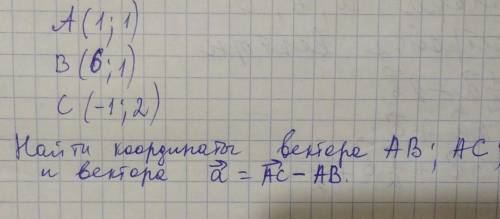 A(1;1)
B(6;1)
C(-1;2)
Найти координаты вектора AB; AC;
и вектора a⃗ = A⃗C - AB.